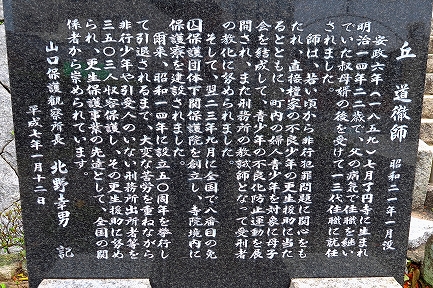 丘　道徹師　昭和二一年一月没
安政六年（一八五九）七月了円寺に生まれ
明治一四年二二歳で、父の病気で住職を継い
でいた叔母婿の後を受けて一三代住職に就任
されました。
師は、若い頃から非行犯罪問題に関心をも
たれ、直接檀家の不良少年の更生援護に当た
るとともに、町内の婦人青少年を対象に母子
会を結成して、青少年の不良化防止運動を展
開され、また刑務所の教誨師となって受刑者
の教化に努められました。
そして、翌二三年九月に全国で八番目の免
囚保護団体下関保護院を創立し、寺境内に
保護寮を建設されました。
爾来、昭和一四年に設立五〇周年を挙行し
て引退されるまで、大変な苦労を重ねながら
非行少年や引受人のいない刑務所出所者等を
三五〇三人収容保護し、その更生援助に努め
られ、更生保護事業の先達として、全国の関
係者から崇められています。
平成七年一月十二日
山口保護観察所長　北野幸男　記